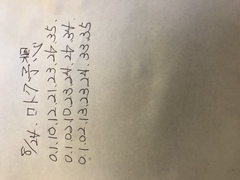 8/24.ロト7予想
0.1.10.12.21.23.27.35.
0.1.02.10.23.24.27.34
0.1.02.13.23.24.33.35